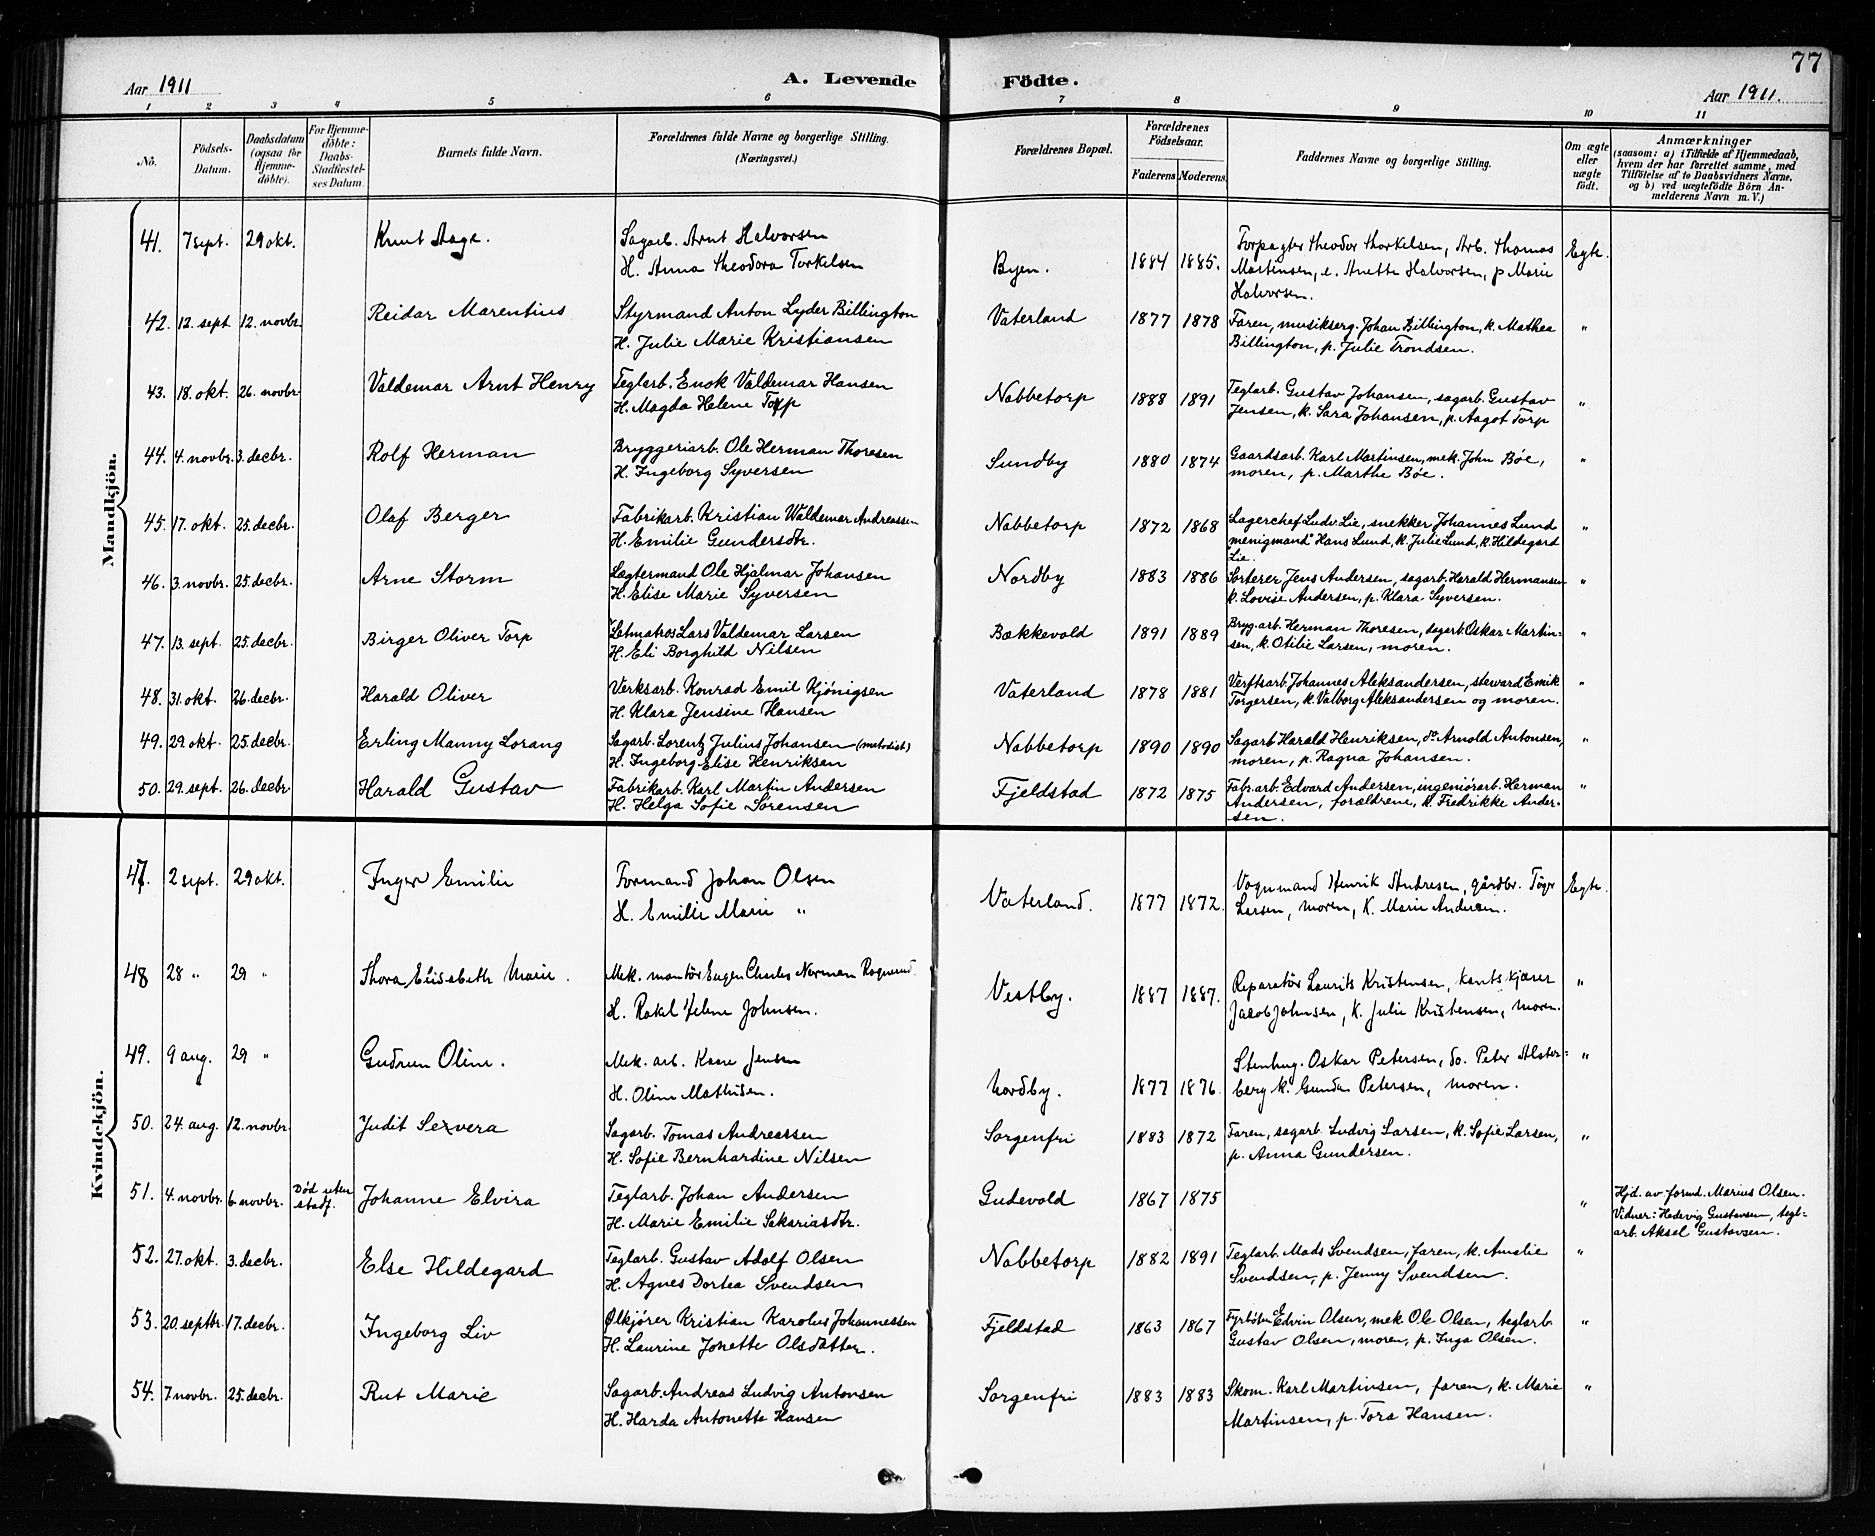 77
Aar 1911
A. Levende Födte.
Aar 1911.
1 2 3 4 5 6 7 8 9 10 11
No.
Födsels-Datum.
Daabsdatum (ogsaa for Hjemmedöbte).
For Hjemmedöbte: Daabs-Stadfæstelses Datum.
Barnets fulde Navn.
Forældrenes fulde Navne og borgerlige Stilling.
(Næringsvei.)
Forældrenes Bopæl.
Forældrenes Födselsaar.
Faderens Moderens
Faddernes Navne og borgerlige Stilling.
Om ægte eller uægte født.
Anmærkninger
(saasom: a) i Tilfælde af Hjemmedaab, hvem der har forrettet samme, med Tilföielse af to Daabsvidners Navne, og b) ved uægtefödte Börn Anmelderens Navn m. V.)
Mandkjön.
41. 7 sept. 29 okt. Knut Aage. Sagarb. Arnt Halvorsen
H. Anna Theodora Torkelsen
Byen. 1884 1885. Forpagter Theodor Thorkelsen, Arb. Thomas
Martinsen, e. Anette Halvorsen, p Marie
Halvorsen.
Egte.
42. 12. sept 12. novbr. Reidar Marentius Styrmand Anton Lyder Billington
H. Julie Marie Kristiansen
Vaterland 1877 1878 Faren, musikserg. Johan Billington, k. Mathea
Billington, p. Julie Trondsen. "
43. 18. okt. 26. novbr. Valdemar Arnt Henry Teglarb. Enok Valdemar Hansen
H. Magda Helene Torp
Nabbetorp 1888 1891 Teglarb. Gustav Johansen, sagarb. Gustav
Jensen, k. Sara Johansen, p. Aagot Torp "
44. 4. novbr. 3. decbr. Rolf Herman Bryggeriarb. Ole Herman Thoresen
H. Ingeborg Syversen
Sundby 1880 1874 Gaardsarb. Karl Martinsen, mek. John Bøe,
moren, p. Marthe Bøe. "
45. 17. okt. 25. decbr. Olaf Berger Fabrikarb. Kristian Waldemar Andreassen
H. Emilie Gundersdtr.
Nabbetorp 1872 1868 Lagerchef Ludv. Lie, snekker Johannes Lund
menigmand Hans Lund, k. Julie Lund, k. Hildegard
Lie "
46. 3. novbr. 25. decbr. Arne Storm Lagtermand Ole Hjalmar Johansen
H. Elise Marie Syversen
Nordby 1883 1886 Sorterer Jens Andersen, sagarb. Harald Hermansen
k. Lovise Andersen, p. Klara Syversen. "
47. 13. sept. 25. decbr. Birger Oliver Torp Letmatros Lars Valdemar Larsen
H. Eli Borghild Nilsen
Bækkevold 1891 1889 Bryg.arb. Herman Thoresen, Oskar Martin=
sen, k. Otilie Larsen, moren. "
48. 31. okt. 26. decbr. Harald Oliver Verksarb. Konrad Emil Kjønigsen
H. Klara Jensine Hansen
Vaterland 1878 1881 Verftsarb. Johannes Aleksandersen, steward Emil
Torgersen, k. Valborg Aleksandersen og moren. "
49. 29. okt. 25. decbr. Erling Manny Lorang Sagarb. Lorentz Julius Johansen (metodist)
H. Ingeborg Elise Henriksen
Nabbetorp 1890 1890 Sagarb Harald Henriksen, do. Arnold Antonsen,
moren, p. Ragna Johansen. "
50. 29. sept. 26. decbr. Harald Gustav Fabrikarb. Karl Martin Andersen
H. Helga Sofie Sørensen
Fjeldstad 1872 1875 Fabr.arb. Edvard Andersen, ingeniørarb. Herman
Andersen, forældrene, k. Fredrikke Ander-
sen. "
Kvindekjön.
47. 2 sept. 29 okt. Inger Emilie Formand Johan Olsen
H. Emilie Marie "
Vaterland. 1877 1872. Vognmand Henrik Andresen, gårdbr. Tøger
Larsen, moren, K. Marie Andersen. Egte.
48 28 " 29 " Thora Elisabeth Marie. Mek. montör Eugen Charles Norman Rognerud.
H. Rakel Helene Johnsen.
Vestby. 1887 1887. Reparatör Laurits Kristensen, kantskjærer
Jacob Johnsen, K. Julie Kristensen, moren. "
49. 9 aug. 29 " Gudrun Oline. Mek. arb. Kaare Jensen
H. Oline Mathisen.
Nordby. 1877 1876. Stenhug. Oskar Petersen, do. Peter Alster=
berg k. Gunda Petersen, moren. "
50. 24. aug. 12. novbr. Judit Severa Sagarb. Tomas Andreassen
H. Sofie Bernhardine Nilsen
Sorgenfri 1883 1872 Faren, sagarb. Ludvig Larsen, k. Sofie Larsen,
p. Anna Gundersen. "
51. 4. novbr. 6. novbr. Død uten
stadf. Johanne Elvira Teglarb. Johan Andersen
H. Marie Emilie Sakariasdtr.
Gudevold 1867 1875 " Hjd. av formd. Marius Olsen.
Vidner: Hedevig Gustavsen, tegl-
arb. Aksel Gustavsen.
52. 27. okt 3. decbr. Else Hildegard Teglarb. Gustav Adolf Olsen
H. Agnes Dortea Svendsen
Nabbetorp 1882 1891 Teglarb. Mads Svendsen, faren, k. Amalie
Svendsen, p. Jenny Svendsen. "
53. 20. septbr. 17. decbr. Ingeborg Liv Ølkjører Kristian Karolus Johannessen
H. Laurine Jonette Olsdatter.
Fjeldstad 1863 1867 Fyrbøter Edvin Olsen, mek Ole Olsen, teglarb.
Gustav Olsen, moren, p. Inga Olsen. "
54. 7 novbr. 25. decbr. Rut Marie Sagarb. Andreas Ludvig Antonsen
H. Harda Antonette Hansen
Sorgenfri 1883 1883 Skom. Karl Martinsen, faren, k. Marie
Martinsen, p. Tora Hansen. "